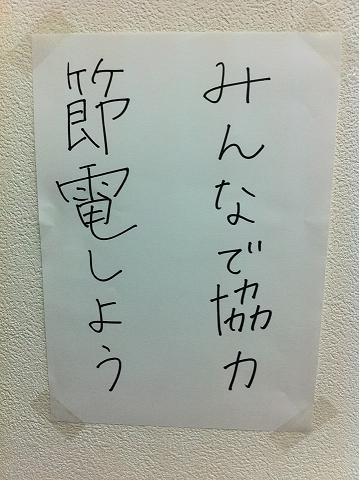 みんなで協力
節電しよう